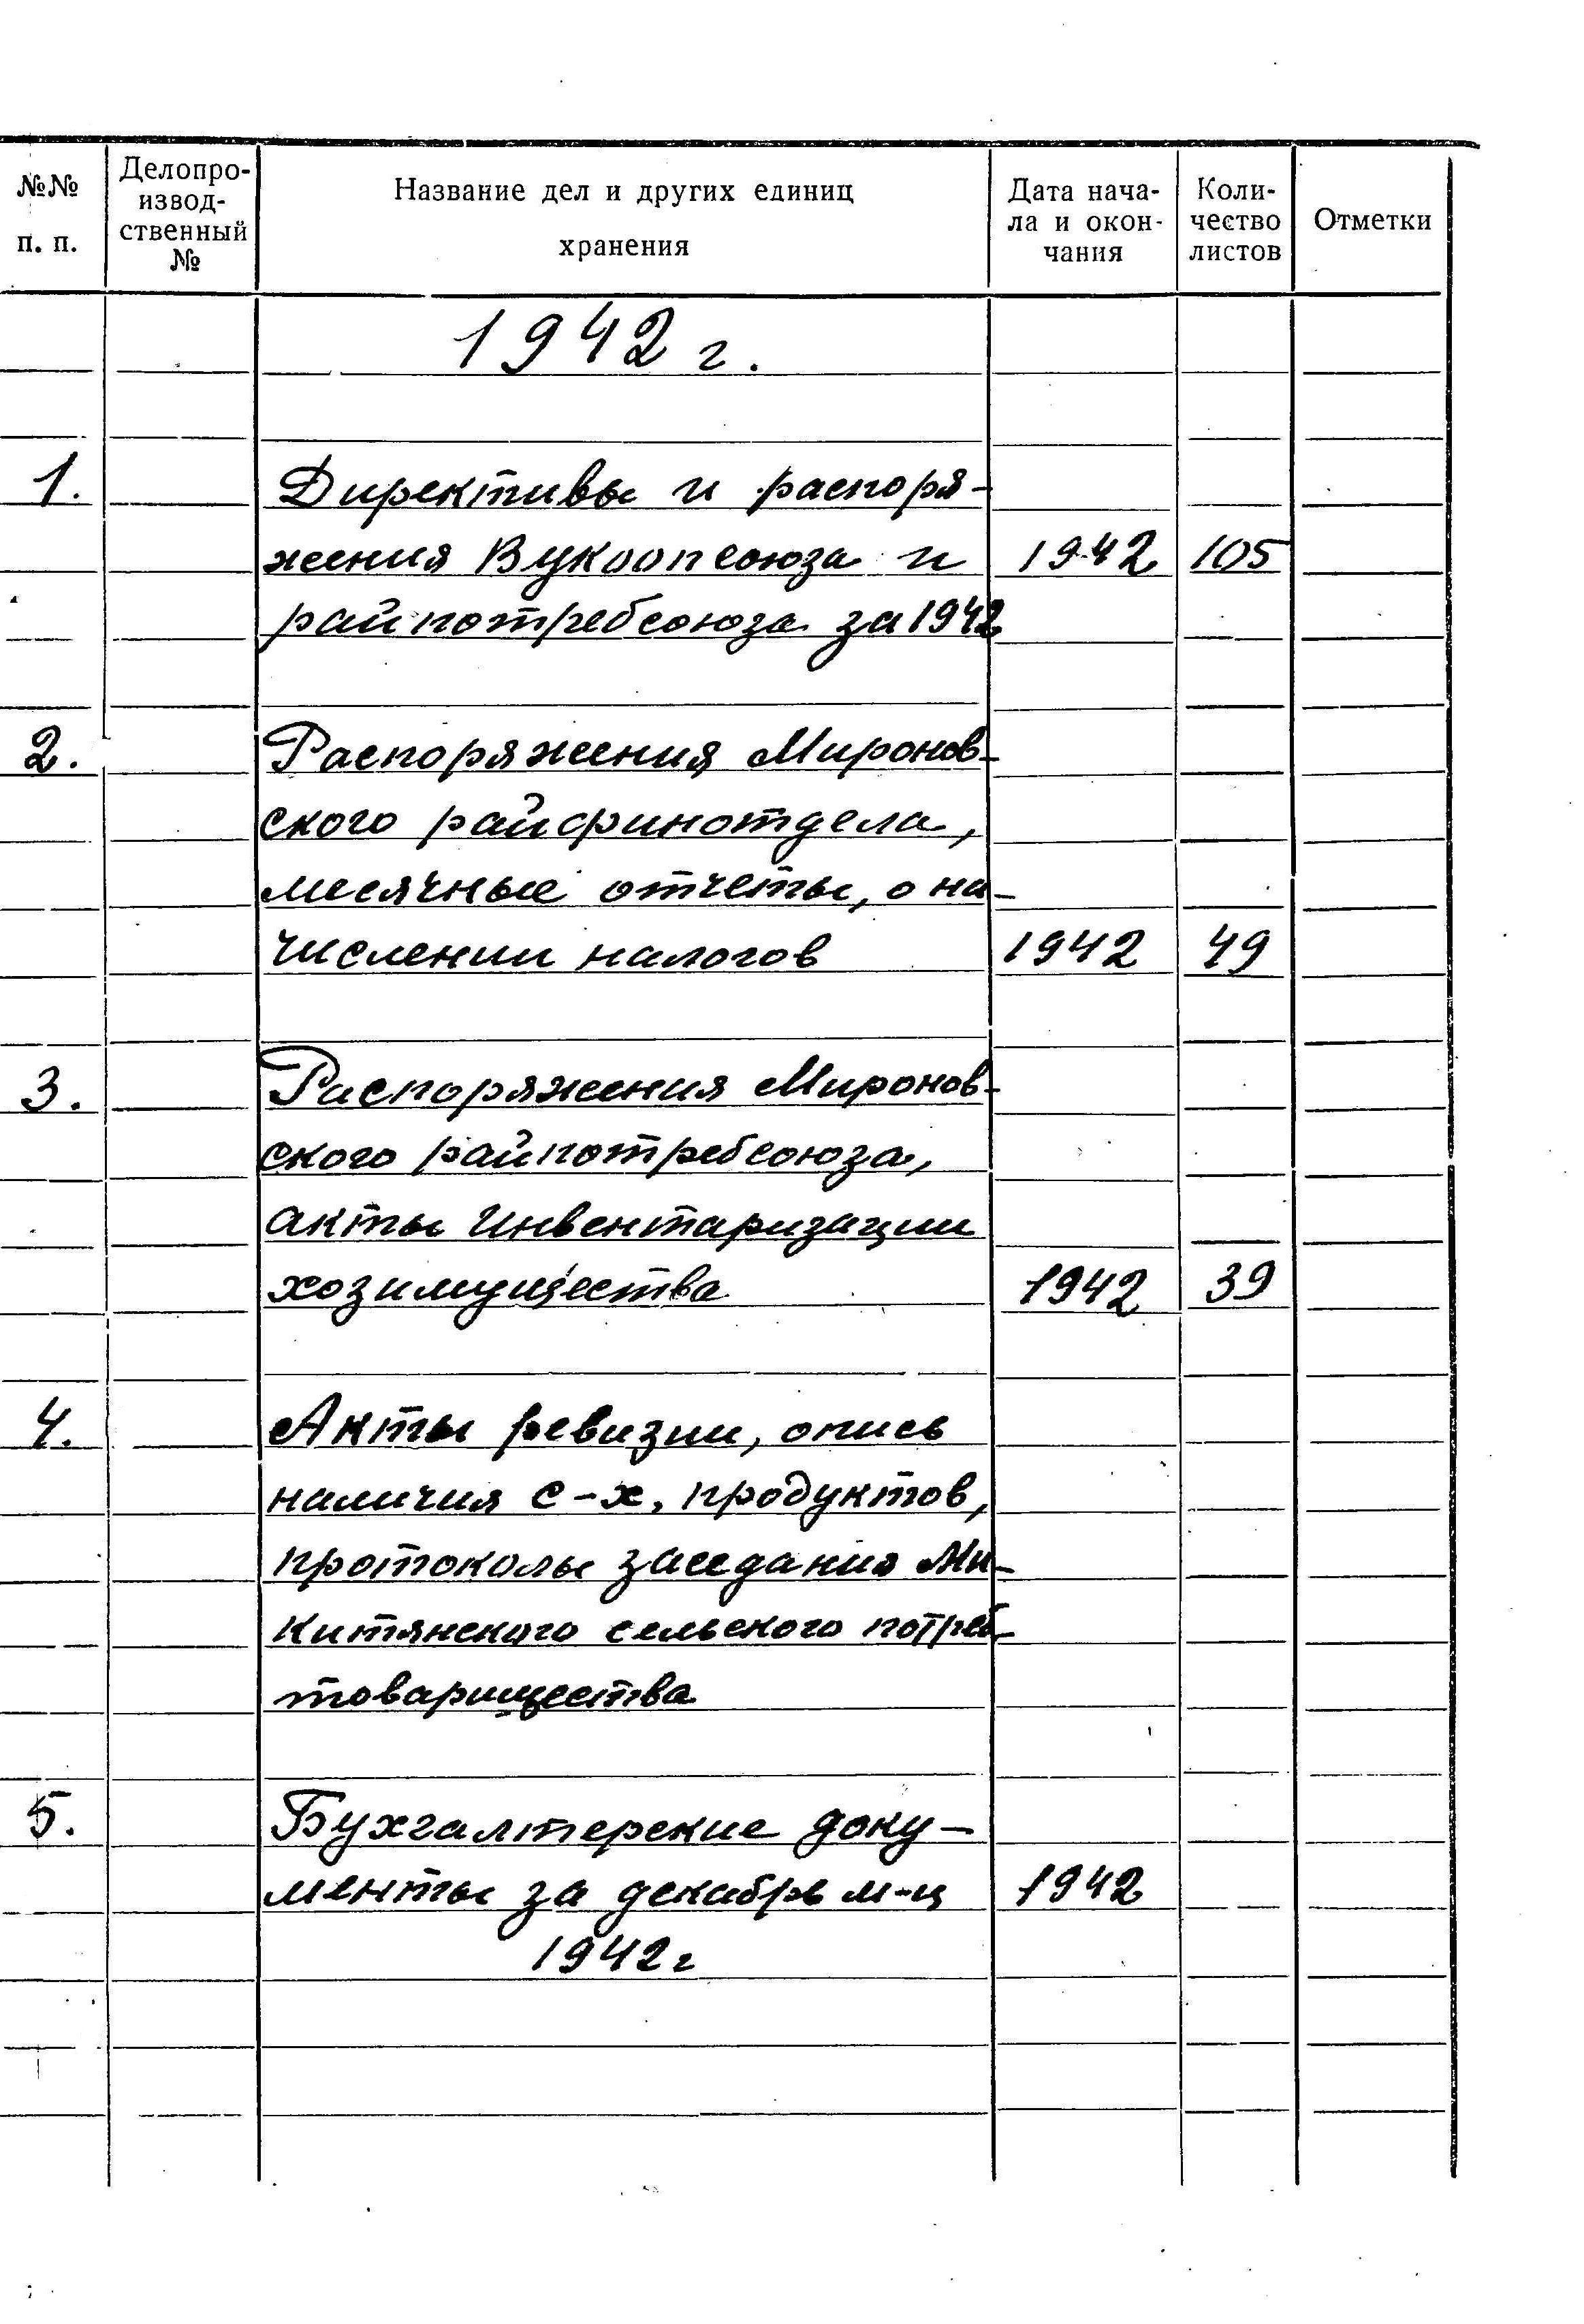 №№ п. п.
Делопро-
извод-
ственный
№
Название дел и других единиц
хранения
Дата нача-
ла и окон-
чания
Коли-
чество
листов
Отметки
1942 г.
1. Директивы и распоря-
жения Вукоопсоюза и 1942 105
райпотребсоюза за 1942
2. Распоряжения Миронов-
ского райфинотдела,
месячные отчеты, о на-
числении налогов 1942 49
3. Распоряжения Миронов-
ского райпотребсоюза,
акты инвентаризации
хозимущества 1942 39
4. Акты ревизии, опись
наличия с-х. продуктов,
протоколы заседания Ми-
китянского сельского потреб-
товарищества
5. Бухгалтерские доку-
менты за декабрь м-ц 1942
1942 г